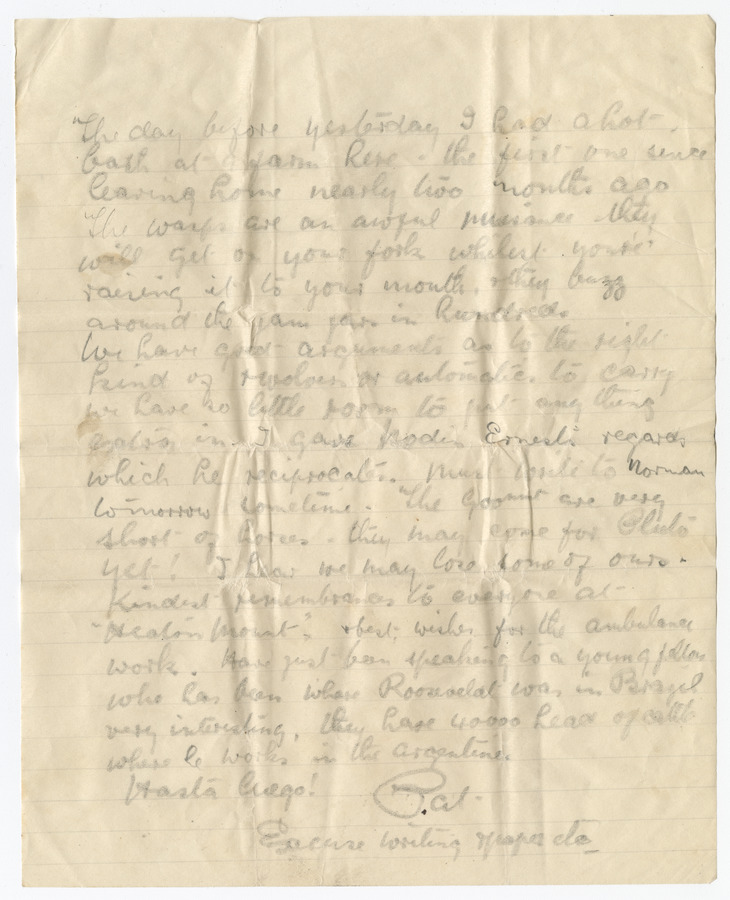 The day before yesterday I had a hot
bath at a farm here - the first one since
leaving home nearly two months ago
The wasps are an awful nuisance they
will get on your fork whilst you're
raising it to your mouth, & they buzz
around the jam jars in hundreds
We have great arguments as to the right
kind of revolver or automatic to carry
we have so little room to put any thing
extra in. I gave Ernest's regards
which he reciprocates. Must write to Norman
tomorrow sometime. The Govmnt are very
short of horses - they may come for Pluto
yet! I hear we may lose some of ours.
Kindest remembrances to everyone at
"Heaton Mount" & best wishes for the ambulance
work. Have just been speaking to a young fellow
who has been where Roosevelt was in Brazil
very interesting, they have 40000 head of cattle
where he works in the argentine.
Hasta luego!
Pat
Excuse writing & paper etc